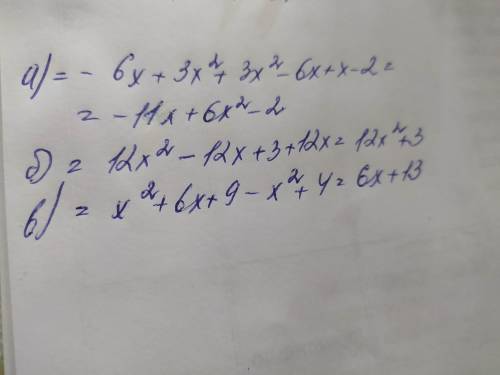 а) = - 6x + 3x² + 3x² - 6x + x - 2 =
= - 11x + 6x² - 2
б) = 12x² - 12x + 3 + 12x = 12x² + 3
в) = x² + 6x + 9 - x² + 4 = 6x + 13